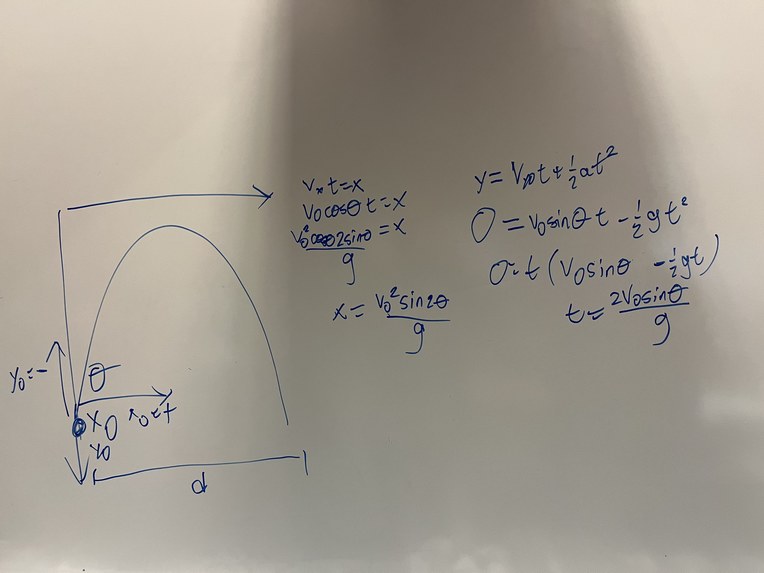 v_x t = x
v_0 cosθ t = x
v_0² cosθ 2 sinθ / g = x
x = v_0² sin2θ / g
y = V_y0 t + ½at²
0 = v_0 sinθ t - ½gt²
0 = t (v_0 sinθ - ½gt)
t = 2v_0 sinθ / g
y_0 = -
θ
x_0
y_0
d